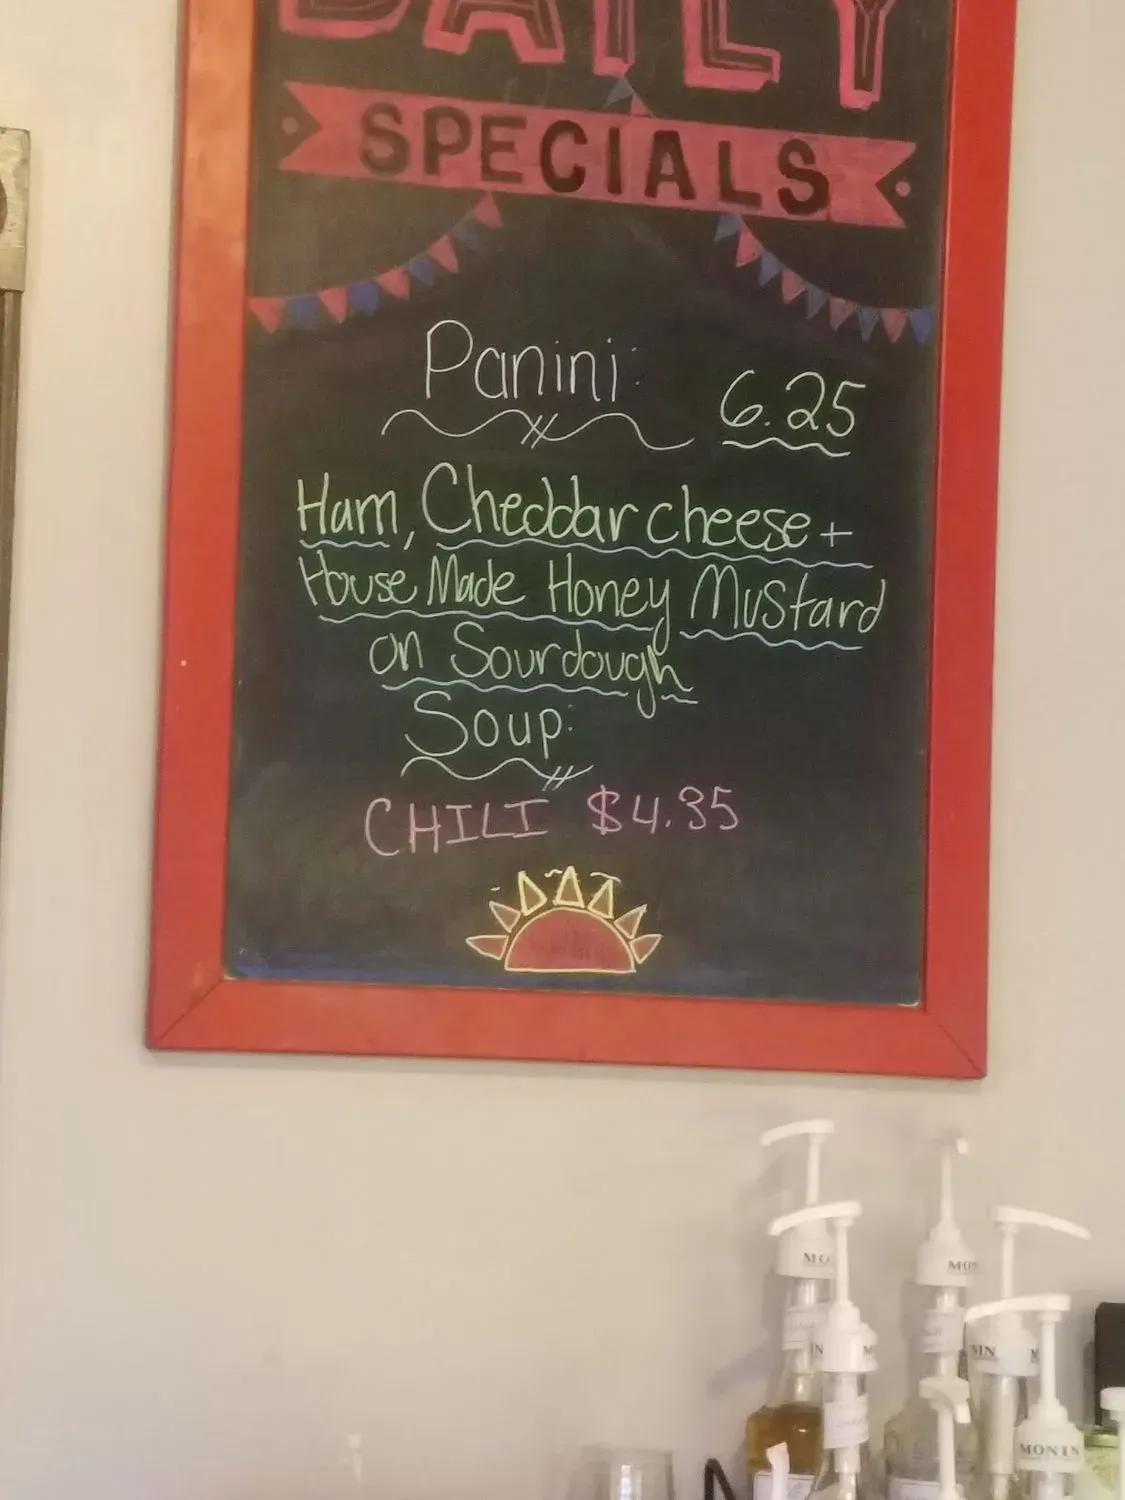 DAILY
SPECIALS
Panini: 6.25
Ham, Cheddar cheese +
House Made Honey Mustard
on Sourdough
Soup:
CHILI $4.35
MO
MON
IN
M
NIN
M
MONIN